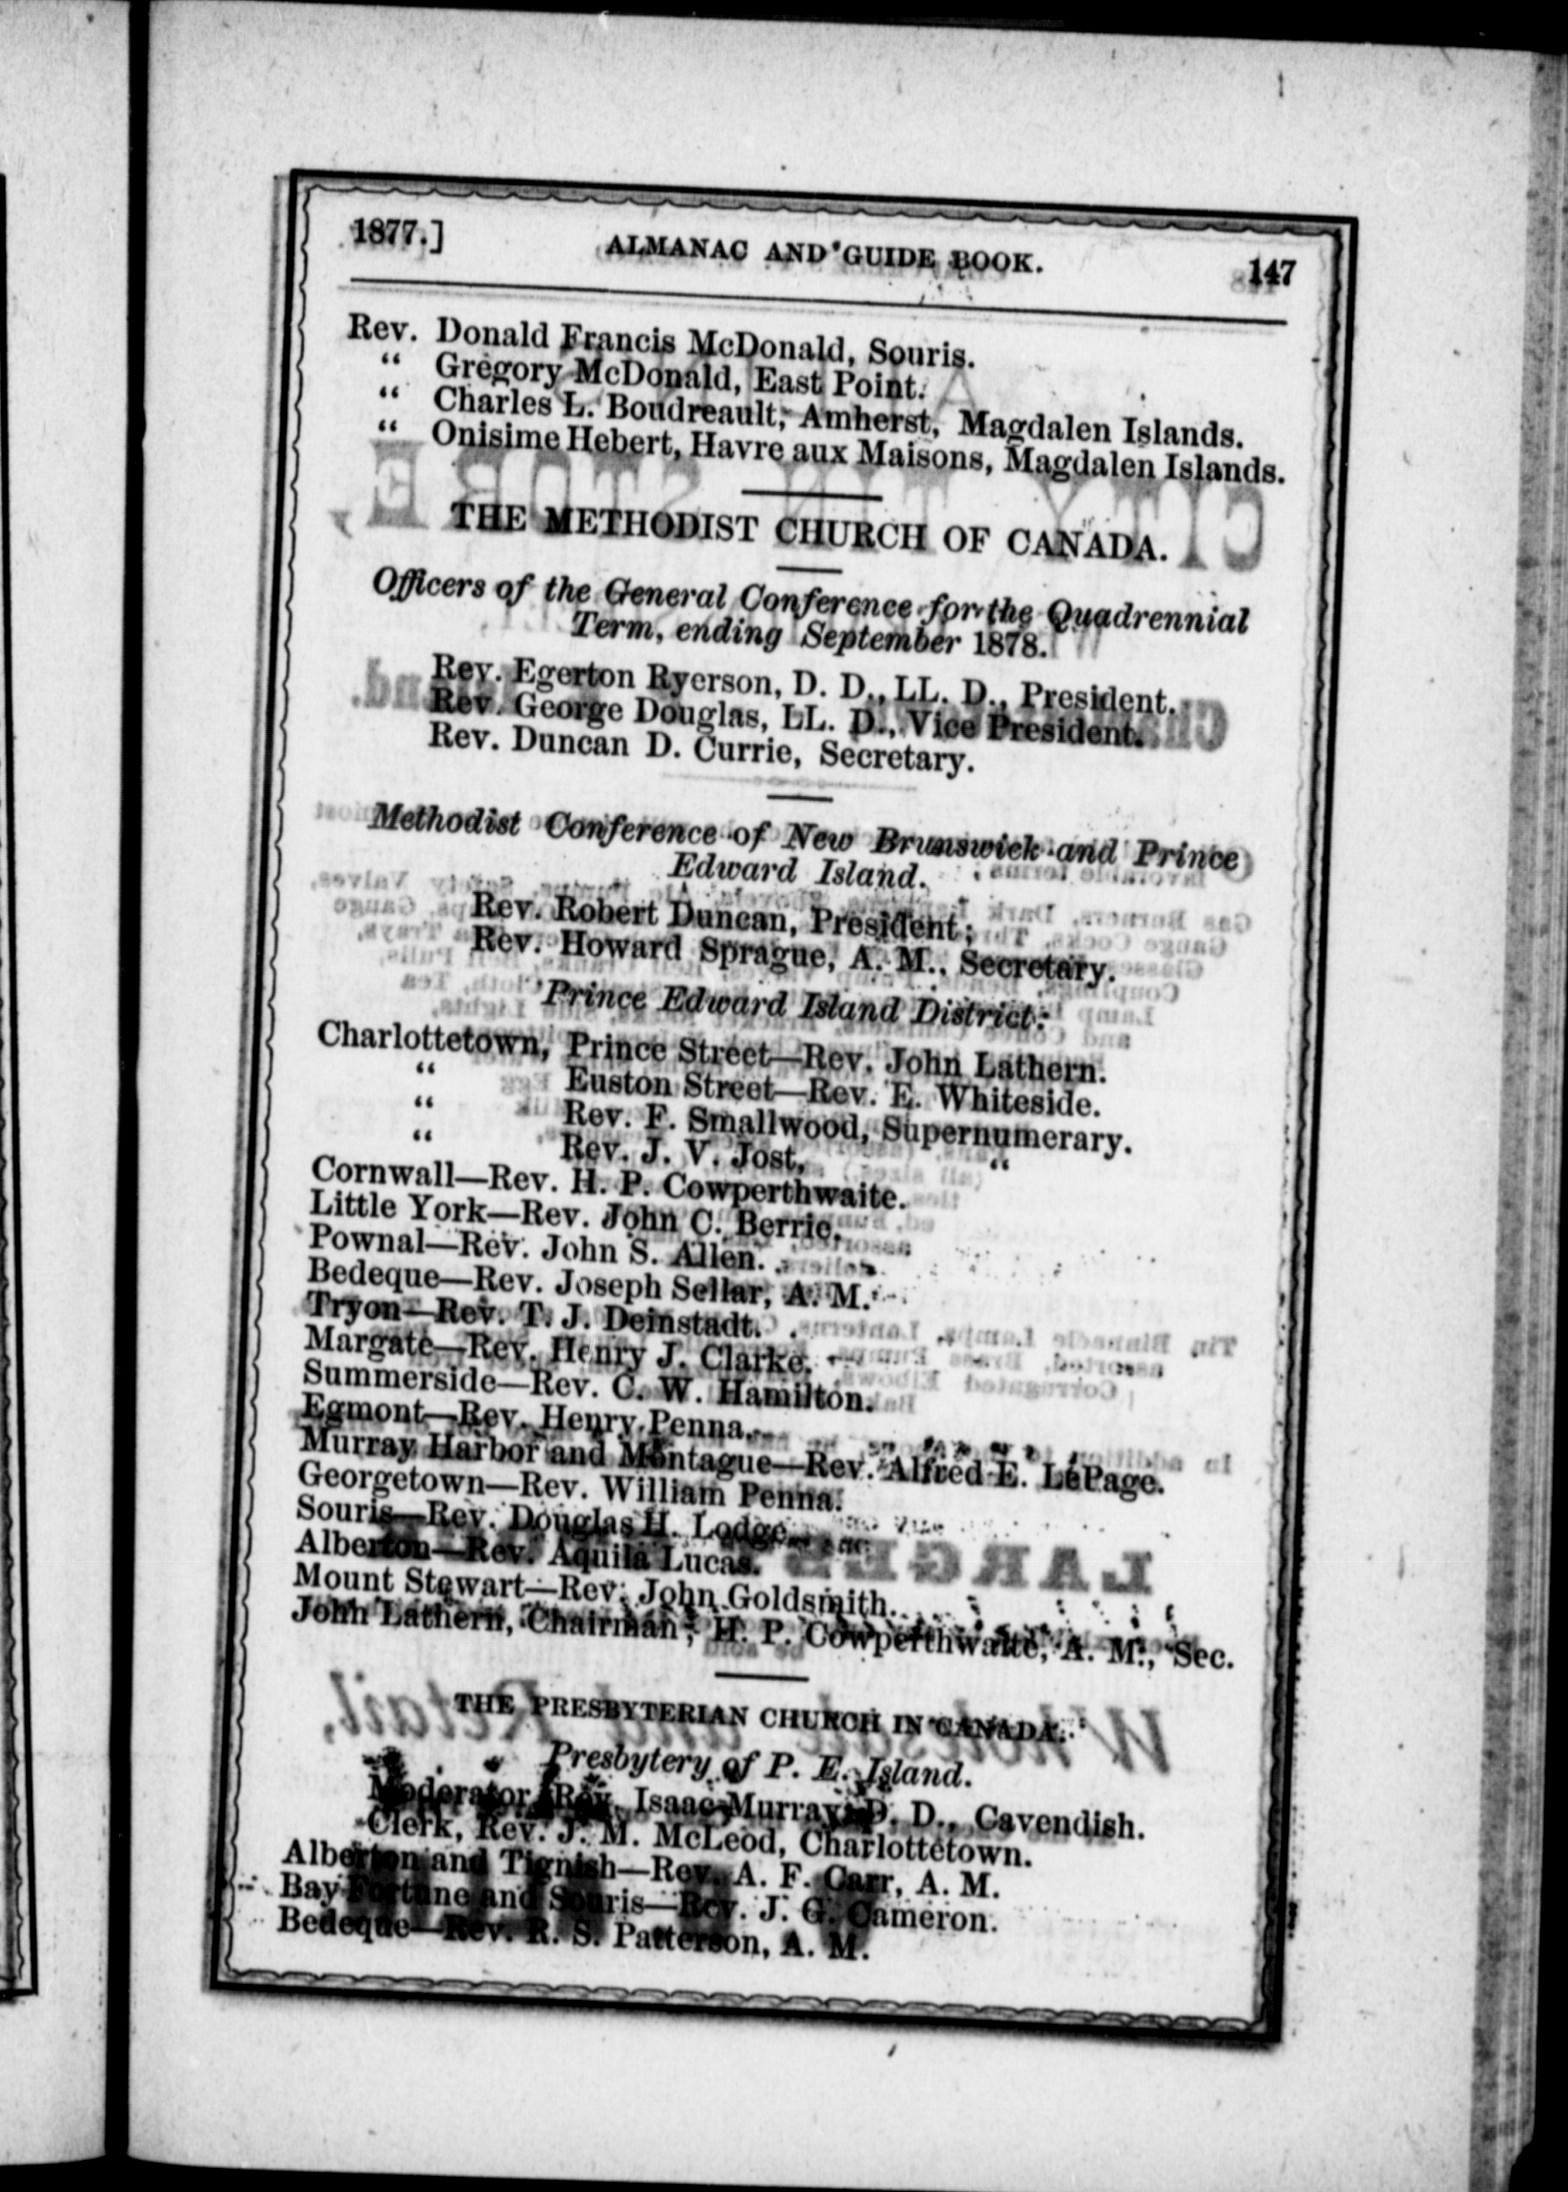 1877.] ALMANAC AND GUIDE BOOK. 147
Rev. Donald Francis McDonald, Souris.
“ Gregory McDonald, East Point.
“ Charles L. Boudreault, Amherst, Magdalen Islands.
“ Onisime Hebert, Havre aux Maisons, Magdalen Islands.
THE METHODIST CHURCH OF CANADA.
Officers of the General Conference for the Quadrennial
Term, ending September 1878.
Rev. Egerton Ryerson, D. D., LL. D., President.
Rev. George Douglas, LL. D., Vice President.
Rev. Duncan D. Currie, Secretary.
Methodist Conference of New Brunswick and Prince
Edward Island.
Rev. Robert Duncan, President;
Rev. Howard Sprague, A. M., Secretary.
Prince Edward Island District:
Charlottetown, Prince Street—Rev. John Lathern.
“ Euston Street—Rev. E. Whiteside.
“ Rev. F. Smallwood, Supernumerary.
“ Rev. J. V. Jost, “
Cornwall—Rev. H. P. Cowperthwaite.
Little York—Rev. John C. Berrie.
Pownal—Rev. John S. Allen.
Bedeque—Rev. Joseph Sellar, A. M.
Tryon—Rev. T. J. Deinstadt.
Margate—Rev. Henry J. Clarke.
Summerside—Rev. C. W. Hamilton.
Egmont—Rev. Henry Penna.
Murray Harbor and Montague—Rev. Alfred E. LePage.
Georgetown—Rev. William Penna.
Souris—Rev. Douglas H. Lodge.
Alberton—Rev. Aquila Lucas.
Mount Stewart—Rev. John Goldsmith.
John Lathern, Chairman; H. P. Cowperthwaite, A. M., Sec.
THE PRESBYTERIAN CHURCH IN CANADA.
Presbytery of P. E. Island.
Moderator, Rev. Isaac Murray, D. D., Cavendish.
Clerk, Rev. J. M. McLeod, Charlottetown.
Alberton and Tignish—Rev. A. F. Carr, A. M.
Bay Fortune and Souris—Rev. J. G. Cameron.
Bedeque—Rev. R. S. Patterson, A. M.